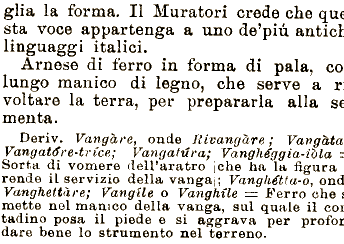 glia la forma. Il Muratori crede che que
sta voce appartenga a uno de'piú antich
linguaggi italici.
Arnese di ferro in forma di pala, co
lungo manico di legno, che serve a ri
voltare la terra, per prepararla alla se
menta.
Deriv. Vangàre, onde Rivangàre; Vangàta
Vangatóre-trice; Vangatúra; Vanghéggia-iòla =
Sorta di vomere dell'aratro che ha la figura
rende il servizio della vanga; Vanghétta-o, ond
Vanghettàre; Vangíle o Vanghíle = Ferro che s
mette nel manico della vanga, sul quale il con
tadino posa il piede e si aggrava per profon
dare bene lo strumento nel terreno.